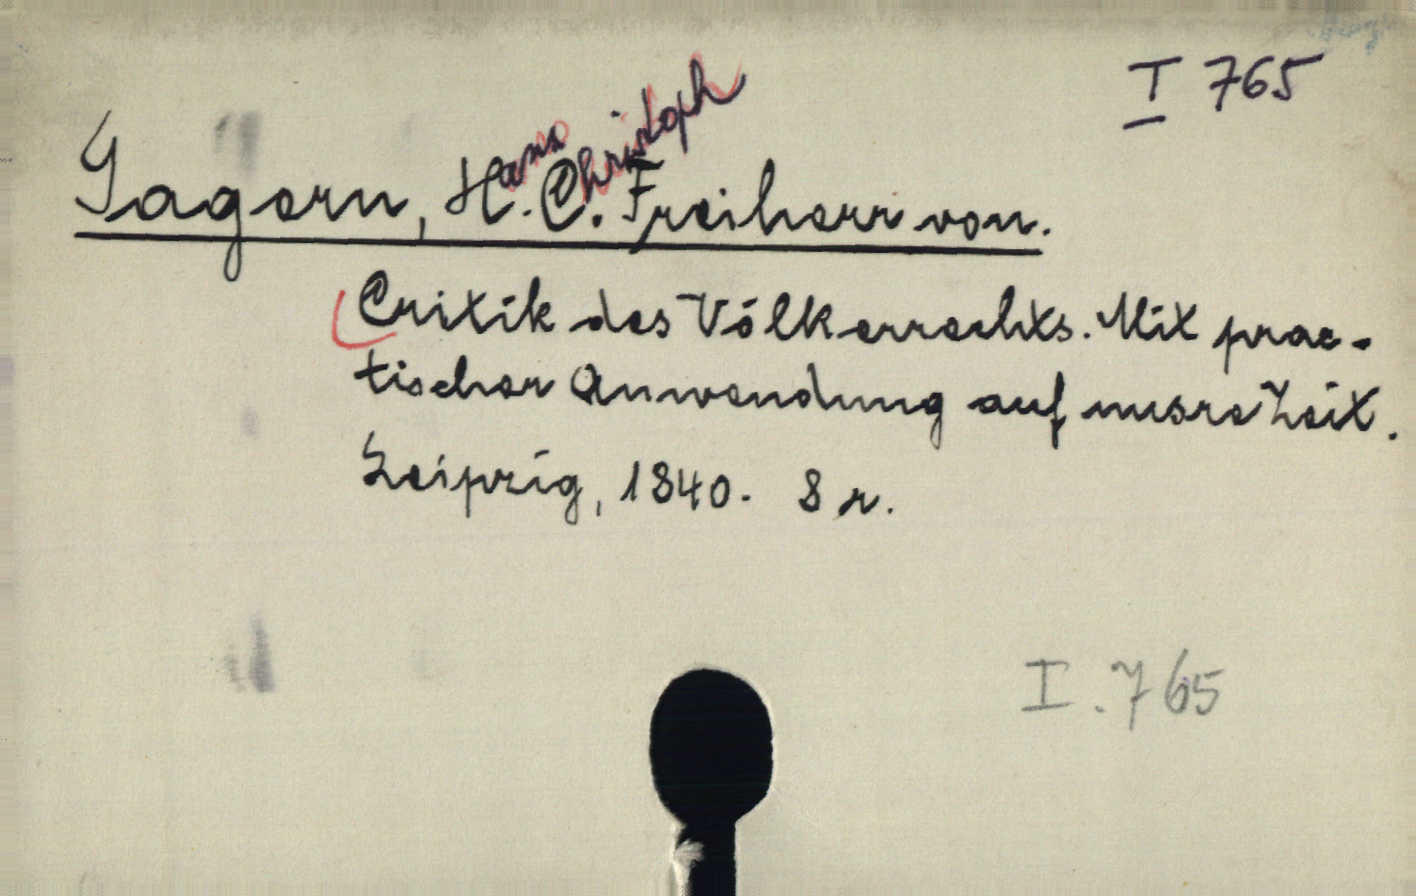 I 765
Gagern, H. C. Freiherr von.
Hans Christoph
Critik des Völkerrechts. Mit prac-
tischer Anwendung auf unsre Zeit.
Leipzig, 1840. 8 r.
I. 765